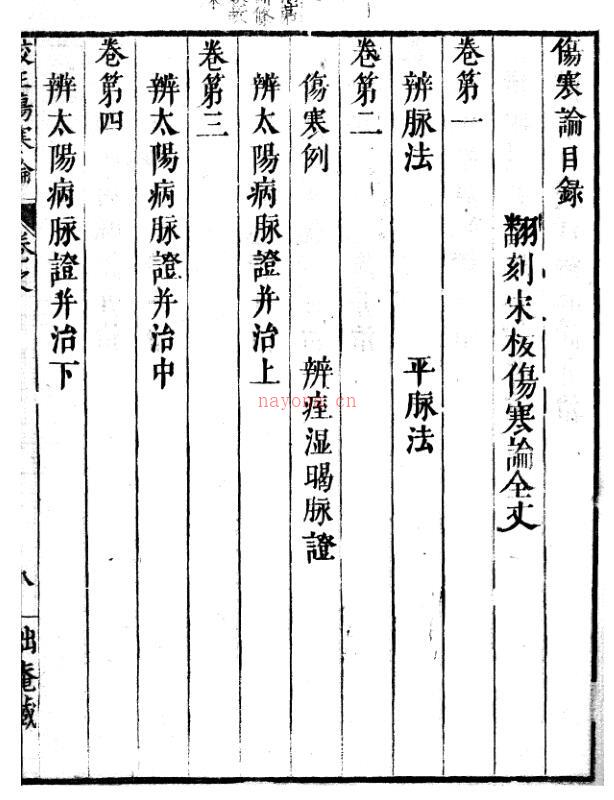 傷寒論目錄
翻刻宋板傷寒論全文
卷第一
辨脉法　平脉法
卷第二
傷寒例　辨痓湿暍脉證
辨太陽病脉證并治上
卷第三
辨太陽病脉證并治中
卷第四
辨太陽病脉證并治下
nayong.cn